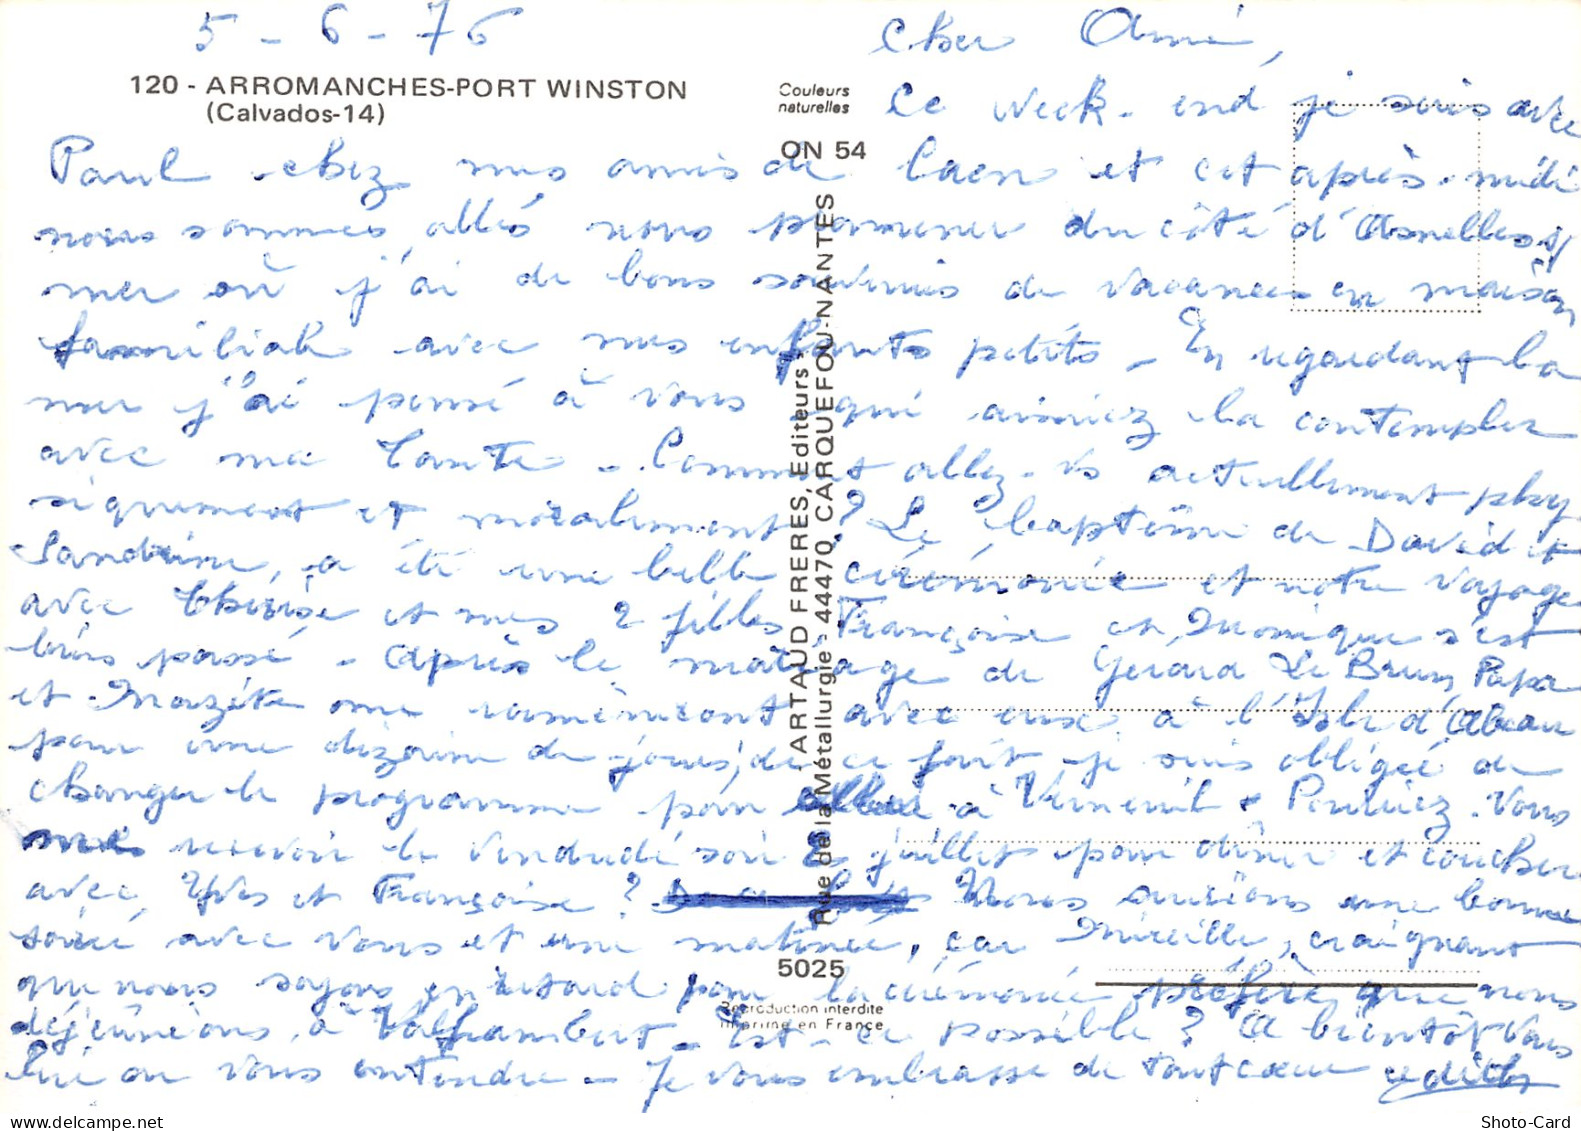 5-6-76
Cher Aimé,
120 - ARROMANCHES-PORT WINSTON
(Calvados-14)
Couleurs
naturelles
ON 54
Ce week-end je suis avec
Paul chez mes amis de Caen et cet après-midi
nous sommes allés nous promener du côté d'Asnelles s/
mer où j'ai de bons souvenirs de vacances en maison
familiale avec mes enfants petits - En regardant la
mer j'ai pensé à vous qui aimiez la contempler
avec ma Tante - Comment allez-vs actuellement phy
siquement et moralement ? Le baptême de David et
Sandrine, a été une belle cérémonie et notre voyage
avec Thérèse et mes 2 filles Françoise et Monique s'est
bien passé - Après le mariage de Gérard Le Brun, Papa
et me ramèneront avec eux à l'Isle d'Abeau
pour une dizaine de jours, de ce fait je suis obligée de
changer le programme pour aller à Verneuil & . Vous
recevoir le vendredi soir 2 juillet pour dîner et coucher
avec Yves et Françoise ? Nous aurions une bonne
soirée avec vous et une matinée, car Mireille, craignant
que nous soyons en retard pour la cérémonie préfère que nous
déjeûnions à Valframbert - Est-ce possible ? A bientôt vous
lire ou vous entendre - Je vous embrasse de tout coeur Edith
ARTAUD FRERES, Editeurs
Rue de la Métallurgie - 44470 CARQUEFOU-NANTES
5025
Reproduction interdite
Imprimé en France
Shoto-Card